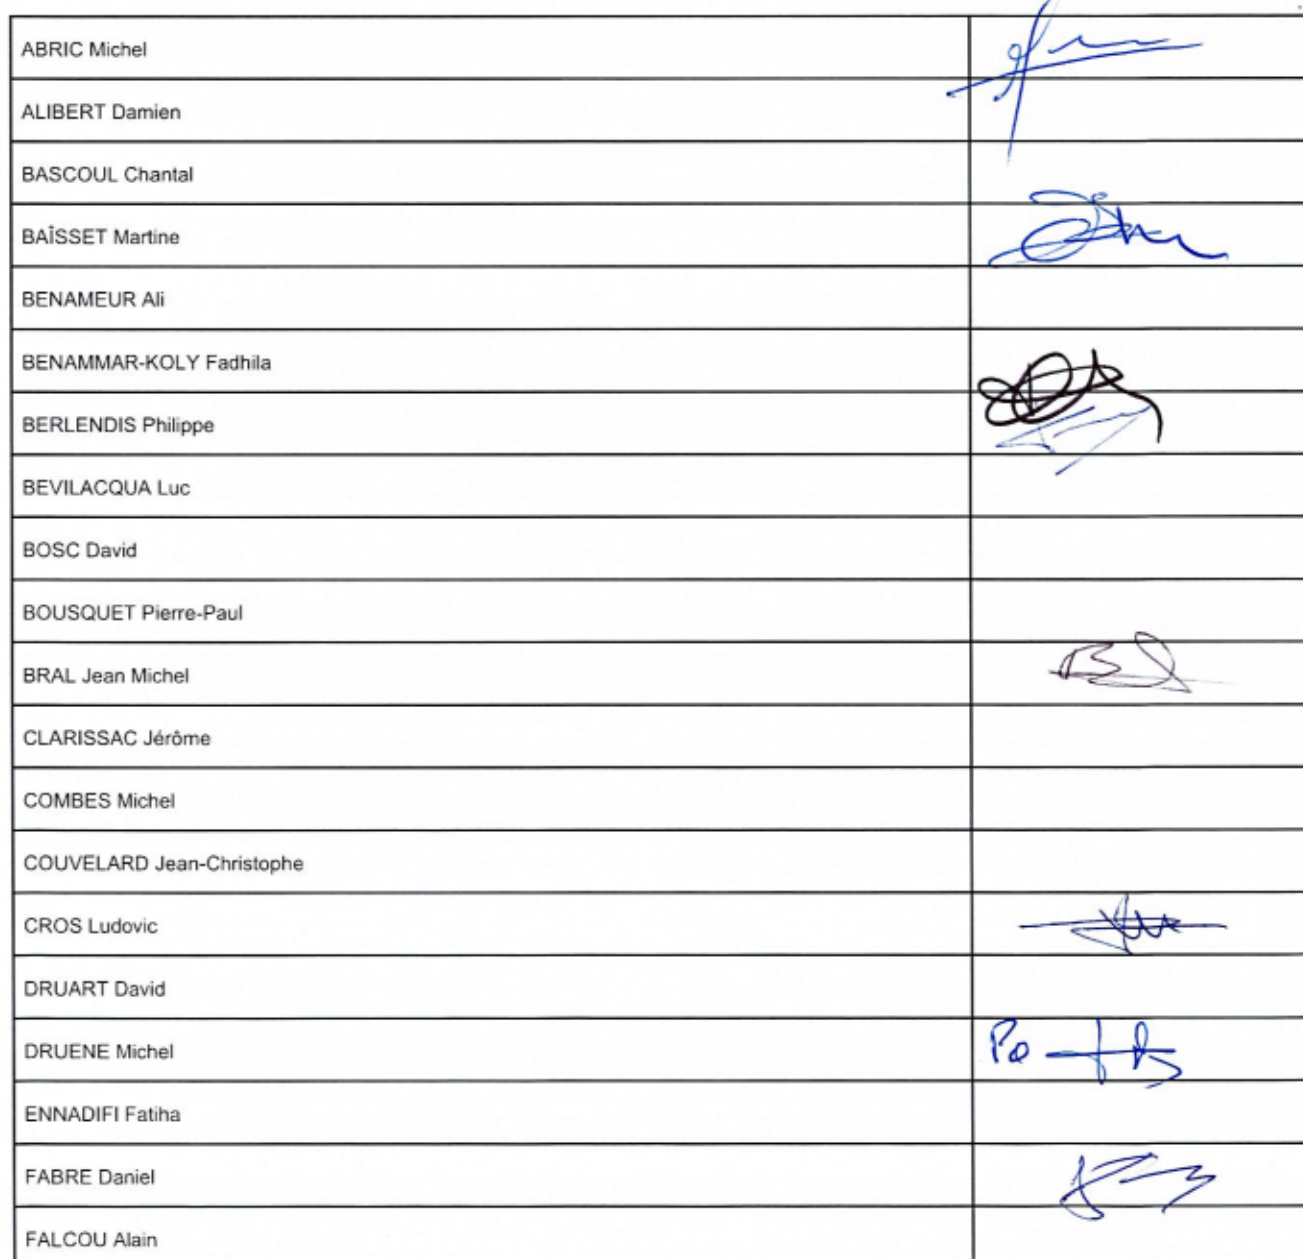 ABRIC Michel
ALIBERT Damien
BASCOUL Chantal
BAÏSSET Martine
BENAMEUR Ali
BENAMMAR-KOLY Fadhila
BERLENDIS Philippe
BEVILACQUA Luc
BOSC David
BOUSQUET Pierre-Paul
BRAL Jean Michel
CLARISSAC Jérôme
COMBES Michel
COUVELARD Jean-Christophe
CROS Ludovic
DRUART David
DRUENE Michel Po
ENNADIFI Fatiha
FABRE Daniel
FALCOU Alain